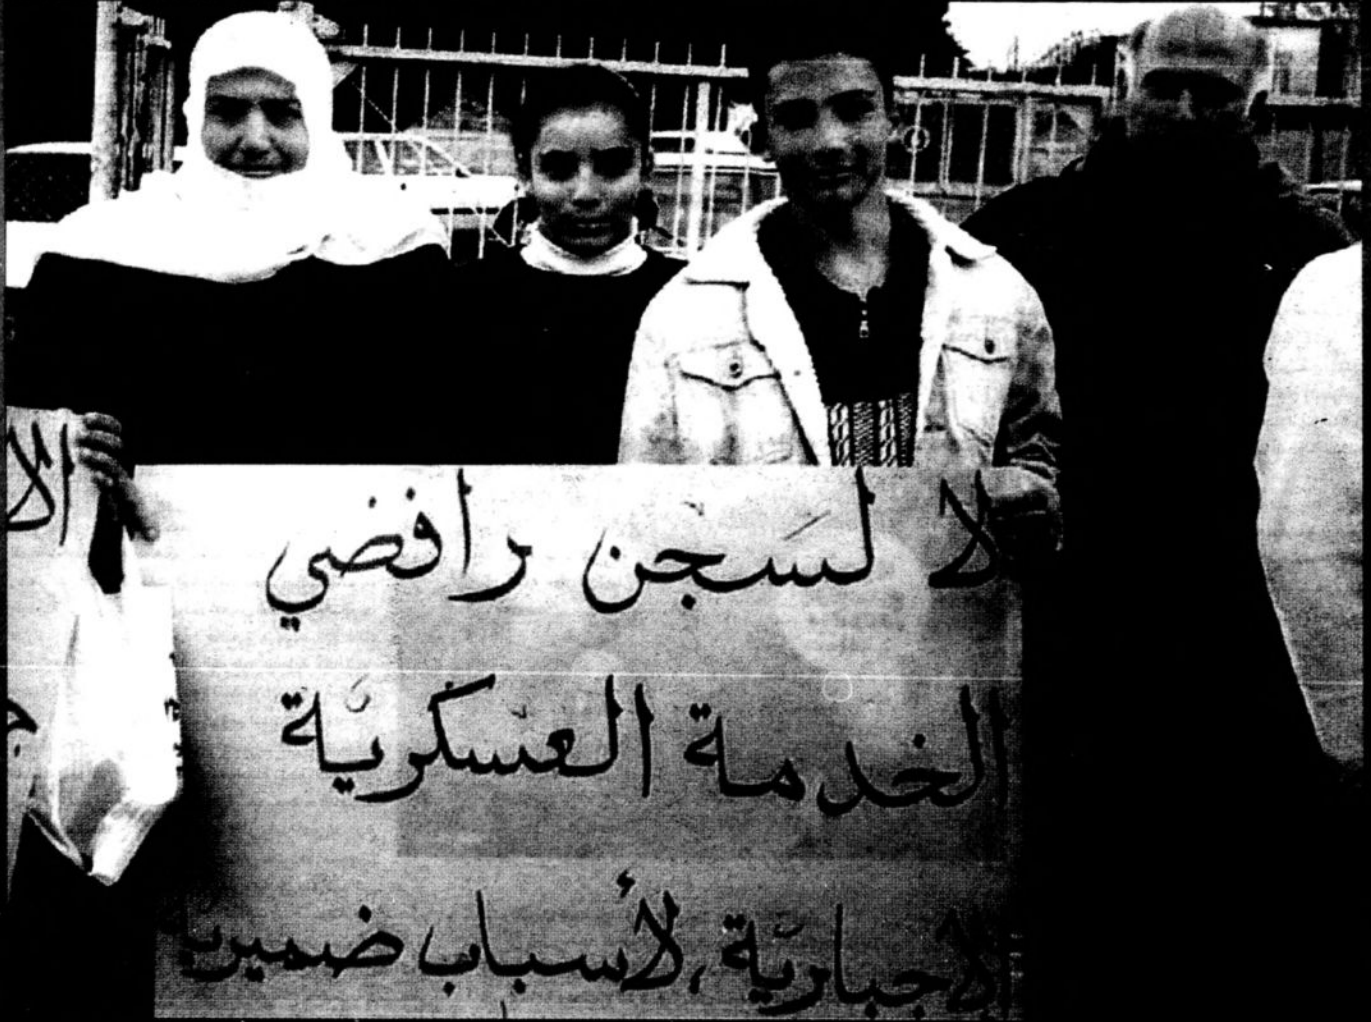 لا لسَجن رافضي
الخدمة العسكريّة
الاجباريّة، لأسباب ضميرية
الا